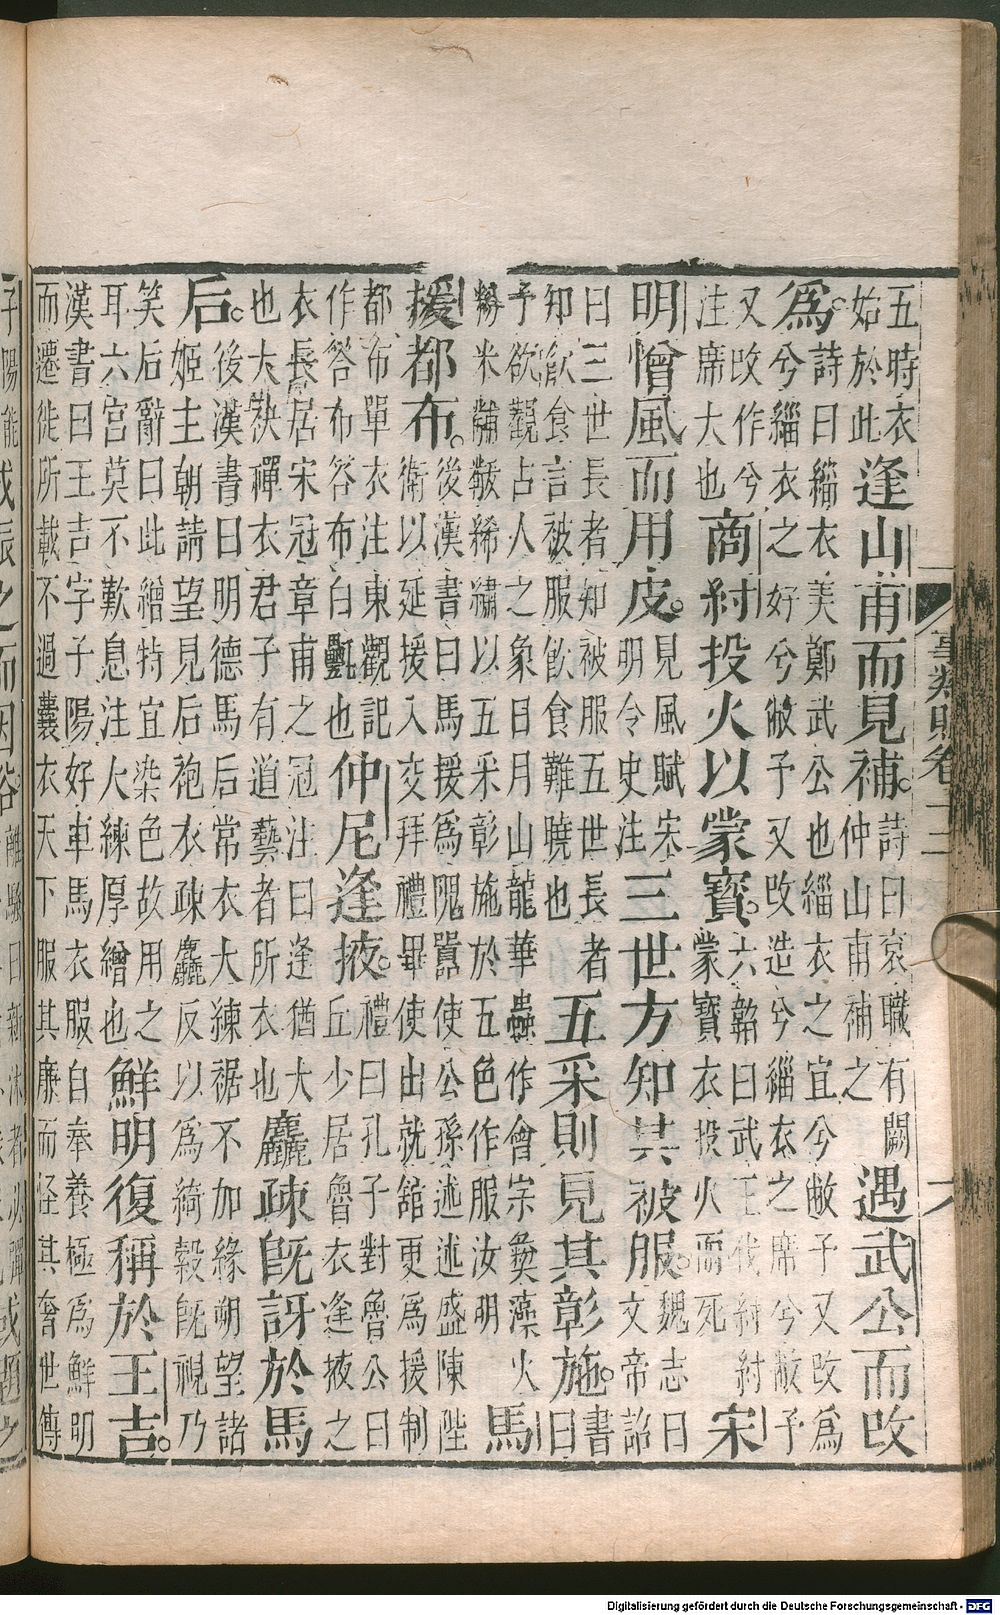 五時衣
始於此
逢山甫而見補
詩曰哀職有闕
仲山甫補之
遇武公而改
為
詩曰緇衣美鄭武公也緇衣之宜兮敝予又改為
兮緇衣之好兮敝予又改造兮緇衣之席兮敝予
又改作兮
注席大也
商紂投火以蒙寶
六韜曰武王伐紂紂
蒙寶衣投火而死
宋
明憎風而用皮
見風賦宋
明令史注
三世方知其被服
魏志曰
文帝詔
曰三世長者知被服五世長者
知飲食言被服飲食難曉也
五采則見其彰施
書
曰
予欲觀古人之象日月山龍華蟲作會宗彝藻火
米黼黻絺繡以五采彰施於五色作服汝明
馬
援都布
後漢書曰馬援為隗囂使公孫述述盛陳陛
衛以延援入交拜禮畢使出就舘更為援制
都布單衣注東觀記
作荅布荅布白氎也
仲尼逢掖
禮曰孔子對魯公曰
丘少居魯衣逢掖之
衣長居宋冠章甫之冠注曰逢猶大
也大袂襌衣君子有道藝者所衣也
麤疎既訝於馬
后
後漢書曰明德馬后常衣大練裾不加緣朔望諸
姬主朝請望見后袍衣疎麤反以為綺縠既視乃
笑后辭曰此繒特宜染色故用之
耳六宮莫不歎息注大練厚繒也
鮮明復稱於王吉
漢書曰王吉字子陽好車馬衣服自奉養極為鮮明
而遷徙所載不過囊衣天下服其廉而怪其奢世傳
事類賦卷十二
Digitalisierung gefördert durch die Deutsche Forschungsgemeinschaft - DFG